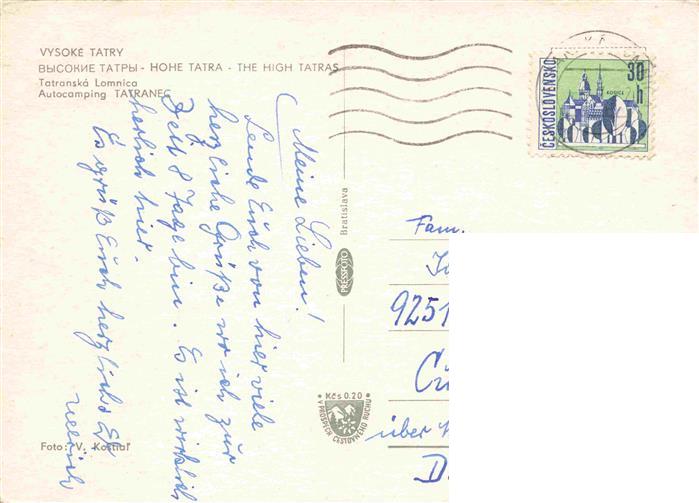 VYSOKÉ TATRY
ВЫСОКИЕ ТАТРЫ - HOHE TATRA - THE HIGH TATRAS
Tatranská Lomnica
Autocamping TATRANEC
Meine Lieben!
Sende Euch von hier viele
herzliche Grüße wo ich zur
Zeit 8 Tage bin. Es ist wirklich
herlich hier.
Es grüßt Euch herzlichst
Foto: V. Kostial
PRESSFOTO Bratislava
Kčs 0.20
V PROSPECH CESTOVNÉHO RUCHU
ČESKOSLOVENSKO
30 h
KOŠICE
Fam.
9251
über
D.